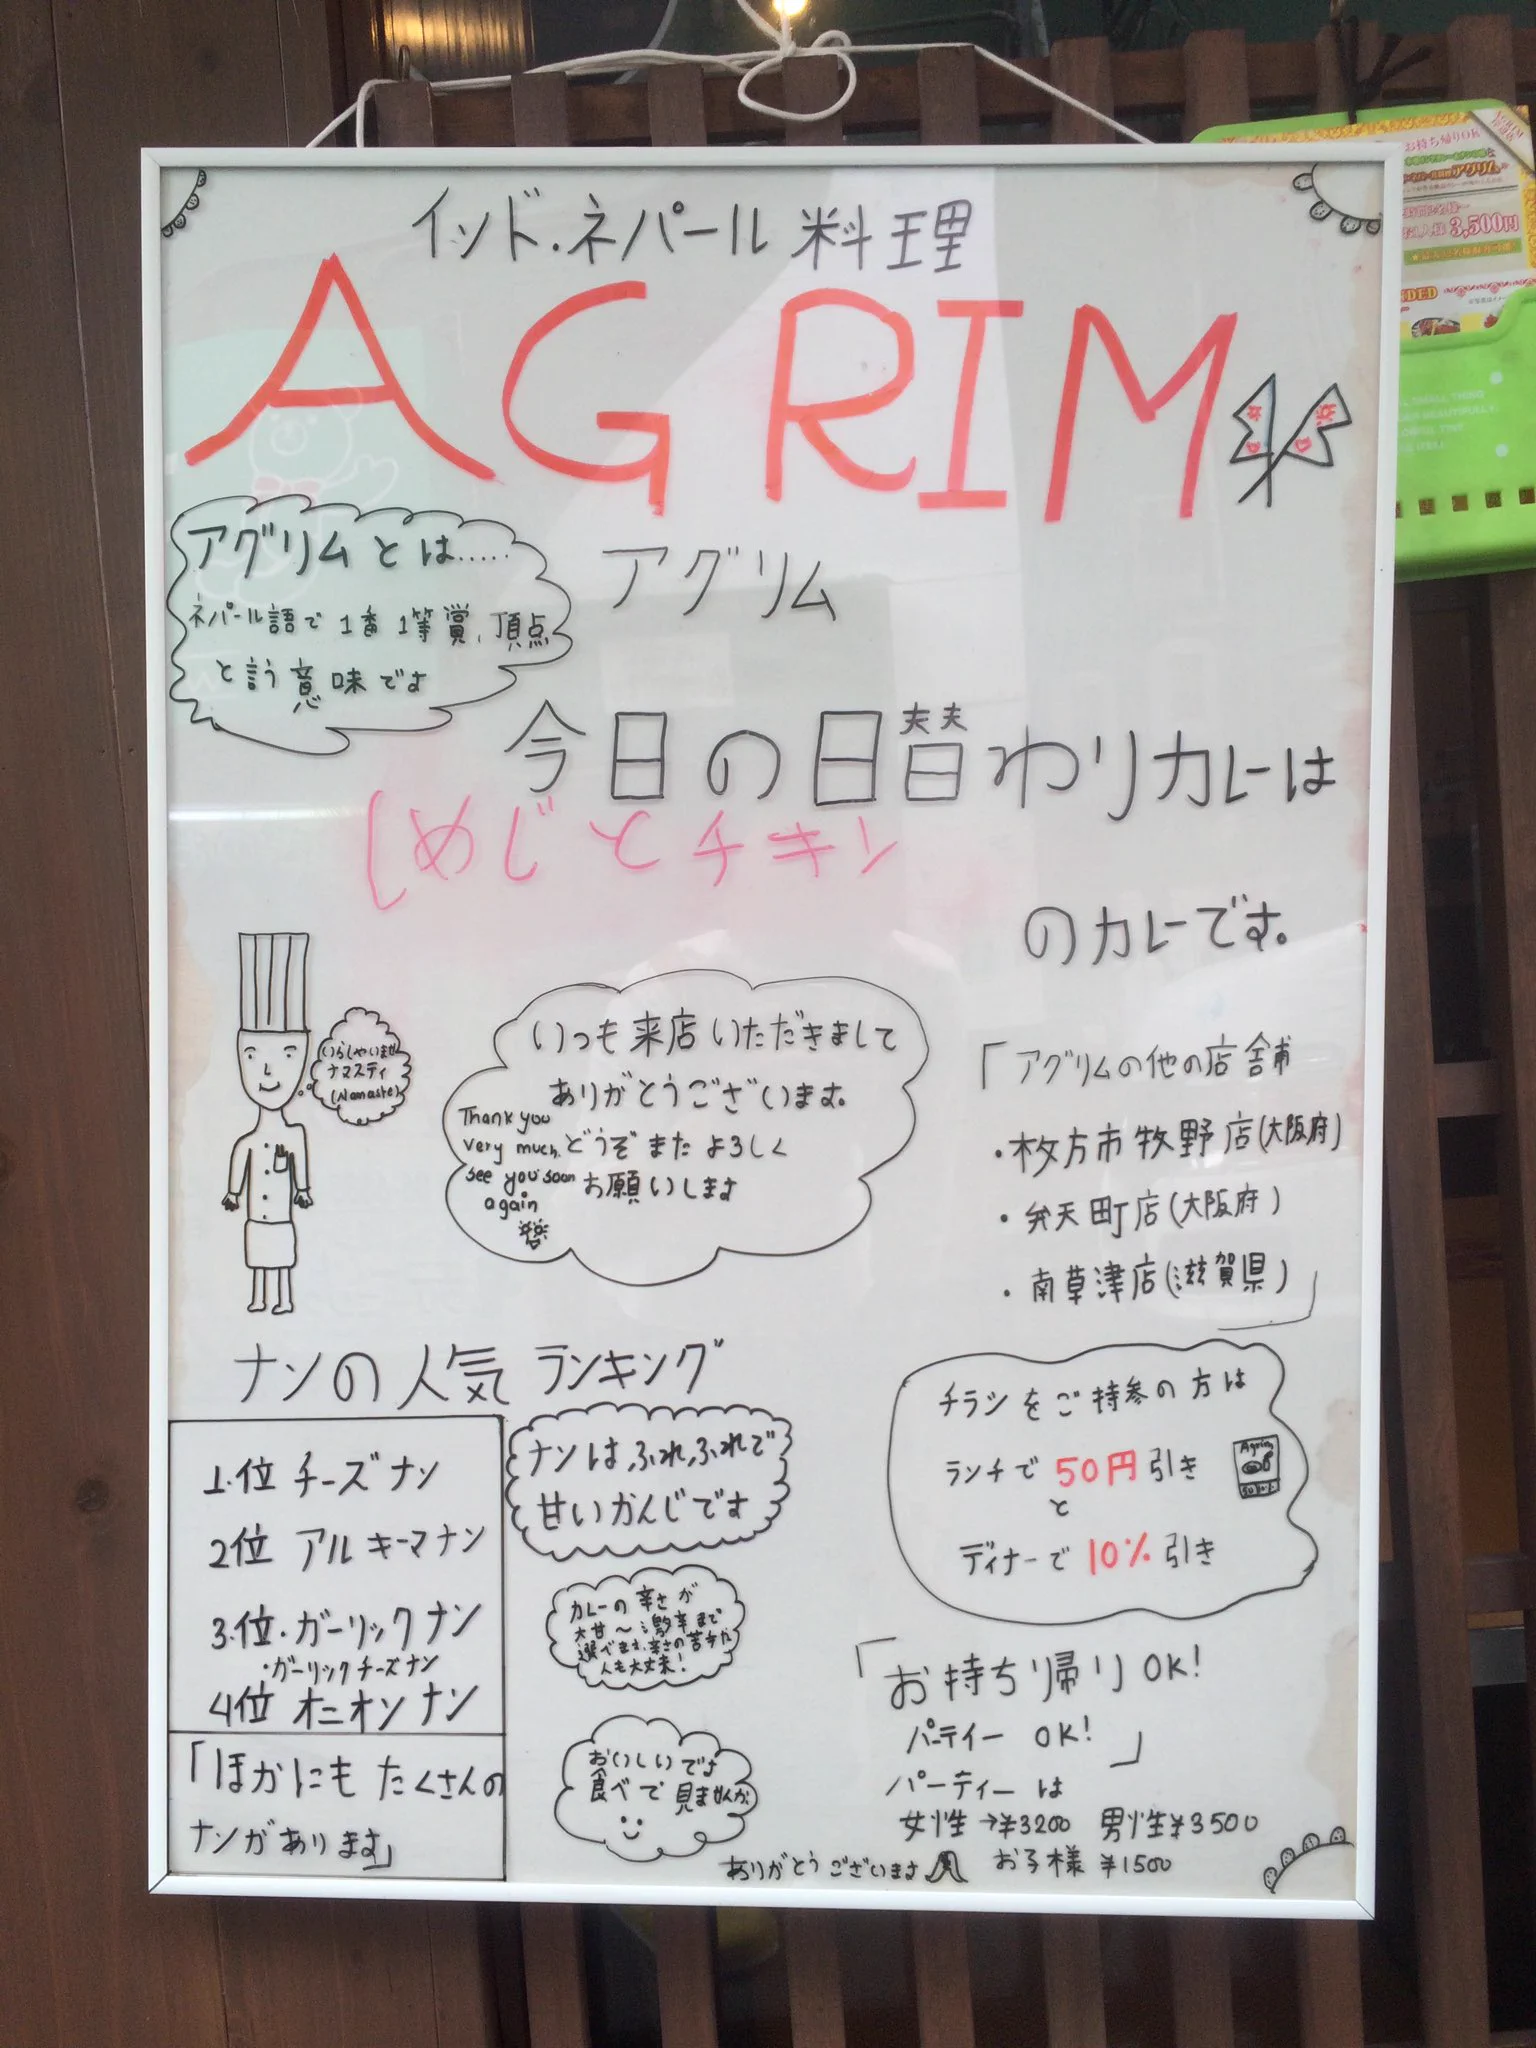 インド・ネパール料理
AGRIM
アグリム
アグリムとは.....
ネパール語で1番1等賞、頂点
と言う意味です
今日の日替わりカレーは
しめじとチキン
のカレーです。
いらしゃいませ
ナマスティ
(Namaste)
いつも来店いただきまして
ありがとうございます。
Thank you
very much. どうぞまたよろしく
see you soon お願いします
again
「アグリムの他の店舗
・枚方市牧野店(大阪府)
・弁天町店(大阪府)
・南草津店(滋賀県)」
ナンの人気ランキング
1.位 チーズナン
2位 アルキーマナン
3.位・ガーリックナン
・ガーリックチーズナン
4位 オニオンナン
「ほかにもたくさんの
ナンがあります」
ナンは、ふれ、ふれで
甘いかんじです
カレーの辛さが
大甘〜激辛まで
選べます、辛さの苦手な
人も大丈夫!
おいしいです
食べで見ませんか
チラシをご持参の方は
ランチで50円引き
と
ディナーで10%引き
Agrim
「お持ち帰りOK!
パーテイーOK!」
パーティーは
女性→¥3200 男性¥3500
お子様 ¥1500
ありがとうございます
お持ち帰りOK
アグリム
3,500円